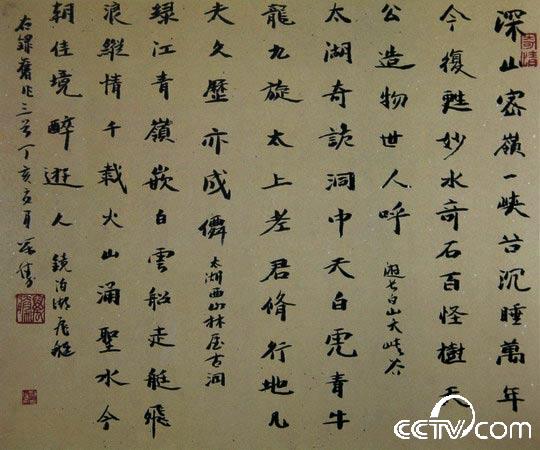 深山密嶺一峽谷沉睡萬年
今復甦妙水奇石百怪樹天
公造物世人呼 遊長白山大峽谷
太湖奇詭洞中天白虎青牛
龍九旋太上老君脩行地凡
夫久歷亦成僊 太湖西山林屋古洞
綠江青嶺嵌白雲船走艇飛
浪繼情千載火山涌聖水今
朝佳境醉遊人 鏡泊湖飛艇
右錄舊作三首丁亥五月
CCTV.com